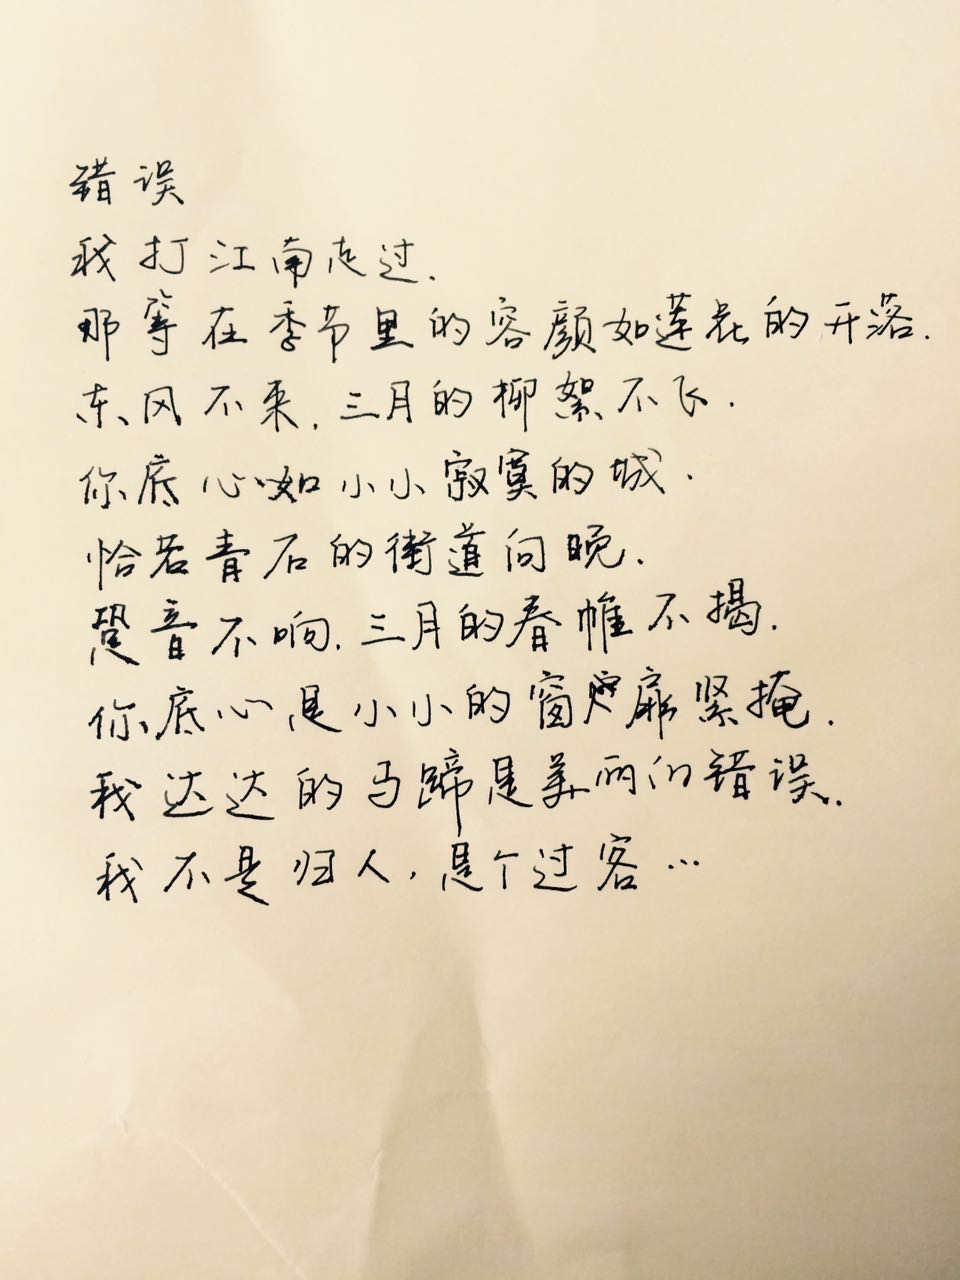 错误
我打江南走过.
那等在季节里的容颜如莲花的开落.
东风不来,三月的柳絮不飞.
你底心如小小寂寞的城.
恰若青石的街道向晚.
跫音不响.三月的春帷不揭.
你底心是小小的窗扉紧掩.
我达达的马蹄是美丽的错误.
我不是归人,是个过客…